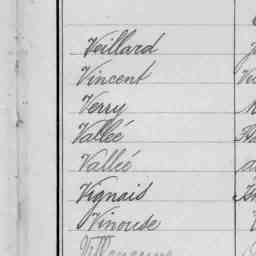 Veillard
Vincent
Verry
Vallée
Vallée
Vignais
Vinouse